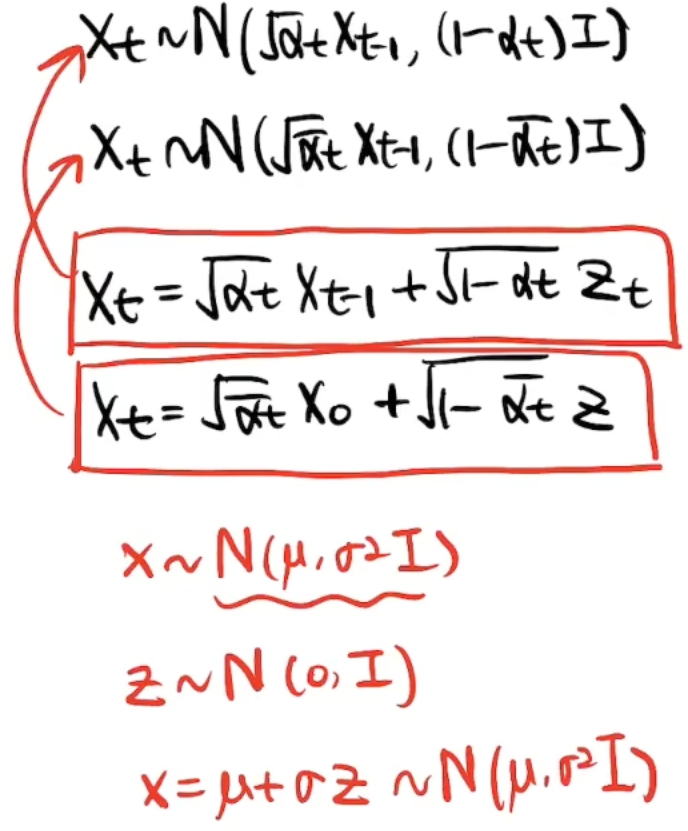 Xt ~ N(√αt Xt-1, (1-αt)I)
Xt ~ N(√ᾱt Xt-1, (1-ᾱt)I)
Xt = √αt Xt-1 + √1-αt Zt
Xt = √ᾱt X0 + √1-ᾱt Z
x ~ N(μ, σ²I)
z ~ N(0, I)
x = μ + σz ~ N(μ, σ²I)